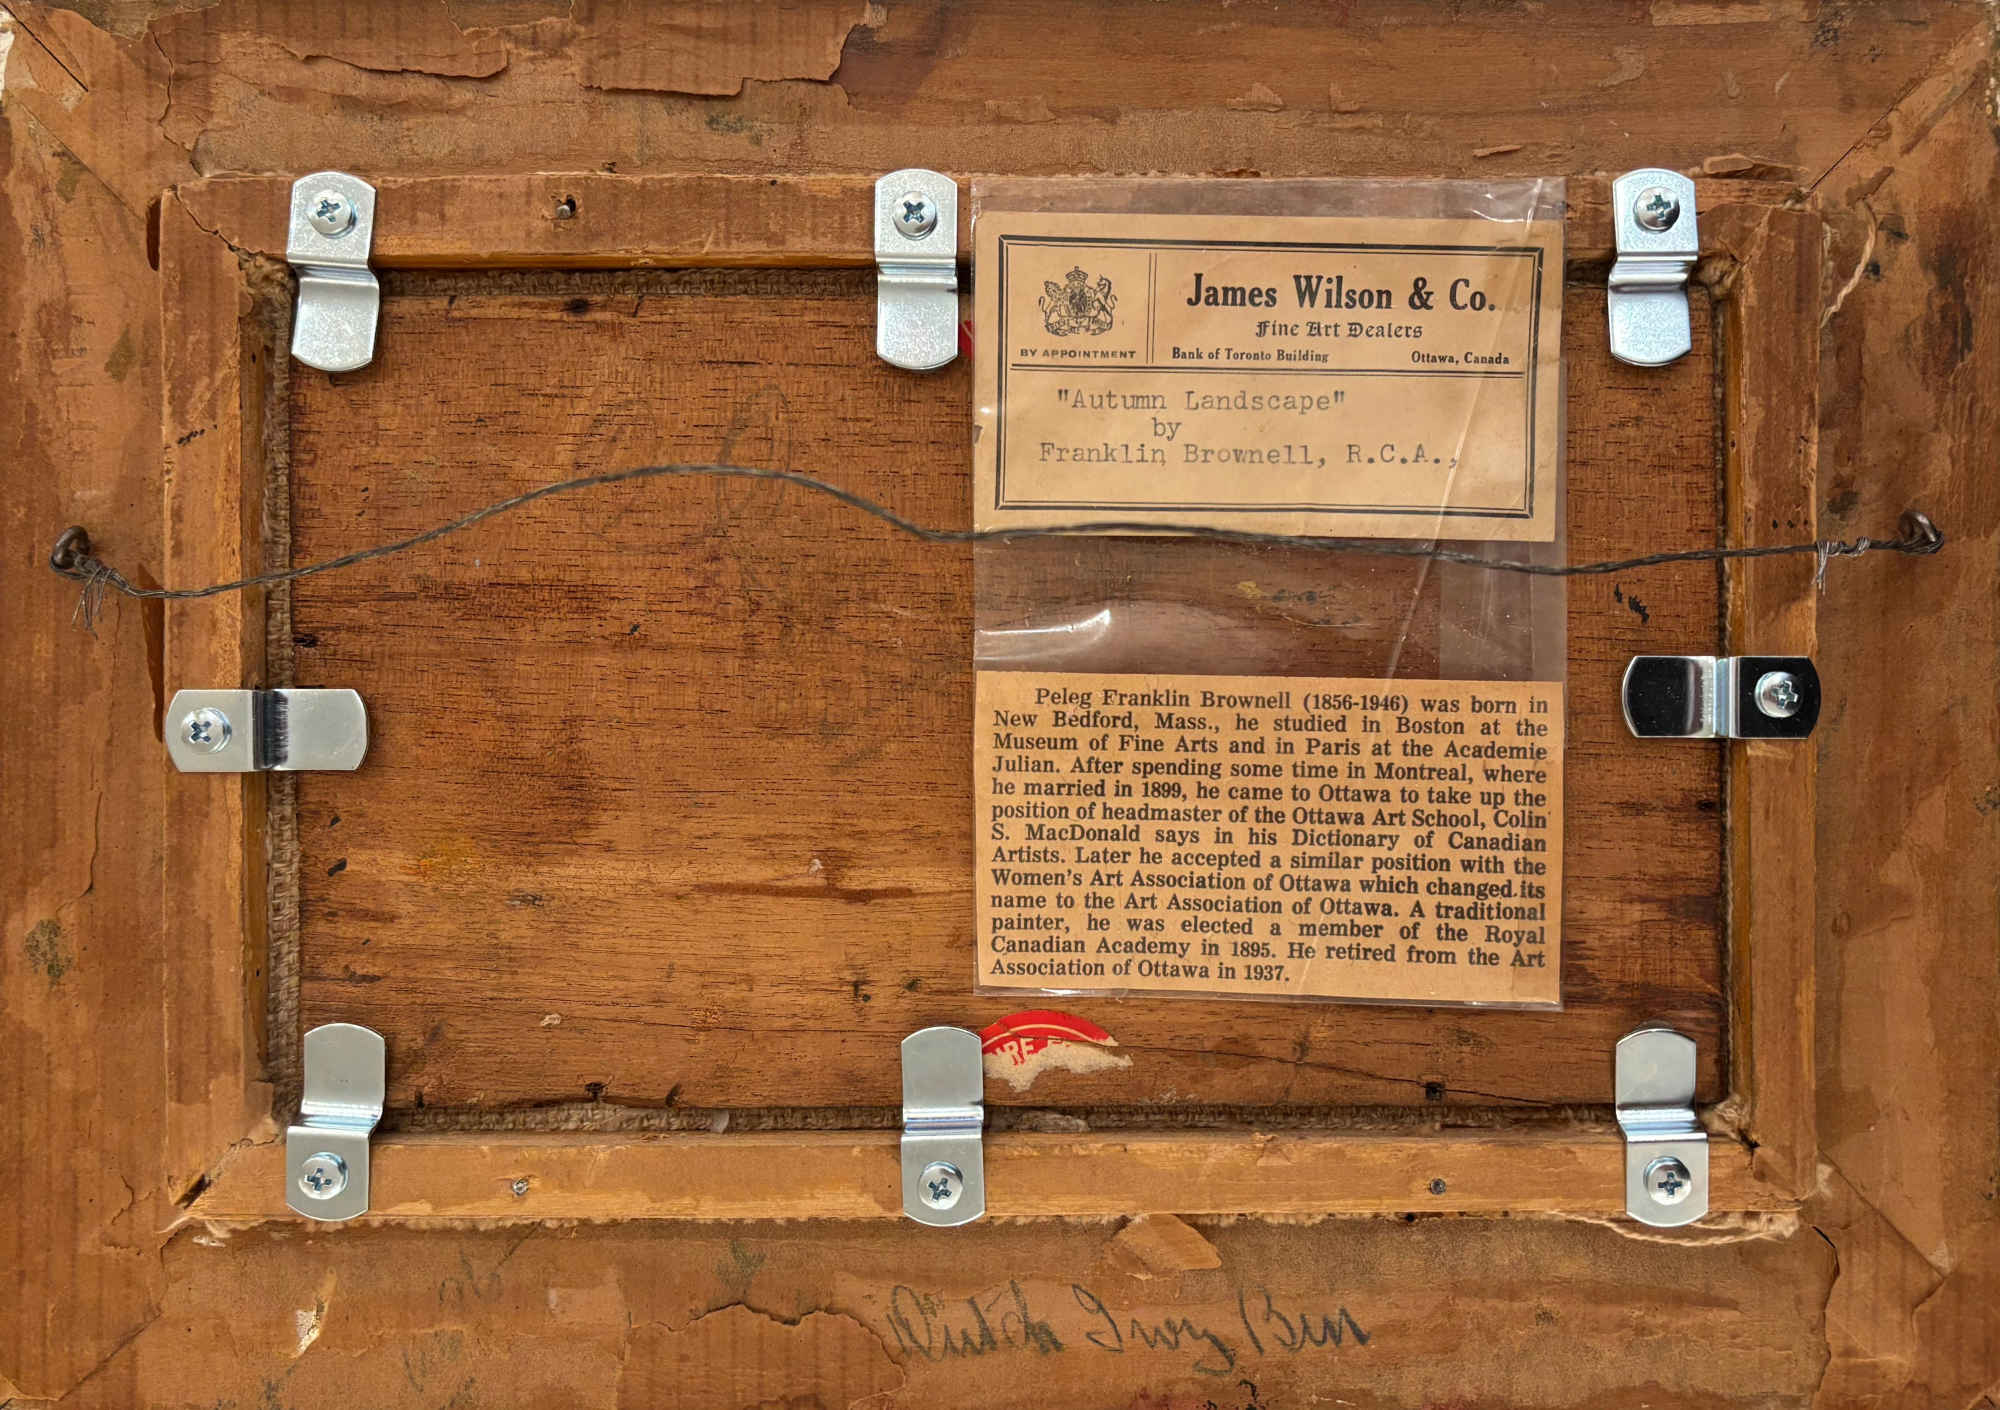 James Wilson & Co.
Fine Art Dealers
BY APPOINTMENT
Bank of Toronto Building Ottawa, Canada
"Autumn Landscape"
by
Franklin Brownell, R.C.A.,
Peleg Franklin Brownell (1856-1946) was born in
New Bedford, Mass., he studied in Boston at the
Museum of Fine Arts and in Paris at the Academie
Julian. After spending some time in Montreal, where
he married in 1899, he came to Ottawa to take up the
position of headmaster of the Ottawa Art School, Colin
S. MacDonald says in his Dictionary of Canadian
Artists. Later he accepted a similar position with the
Women's Art Association of Ottawa which changed its
name to the Art Association of Ottawa. A traditional
painter, he was elected a member of the Royal
Canadian Academy in 1895. He retired from the Art
Association of Ottawa in 1937.
Dutch